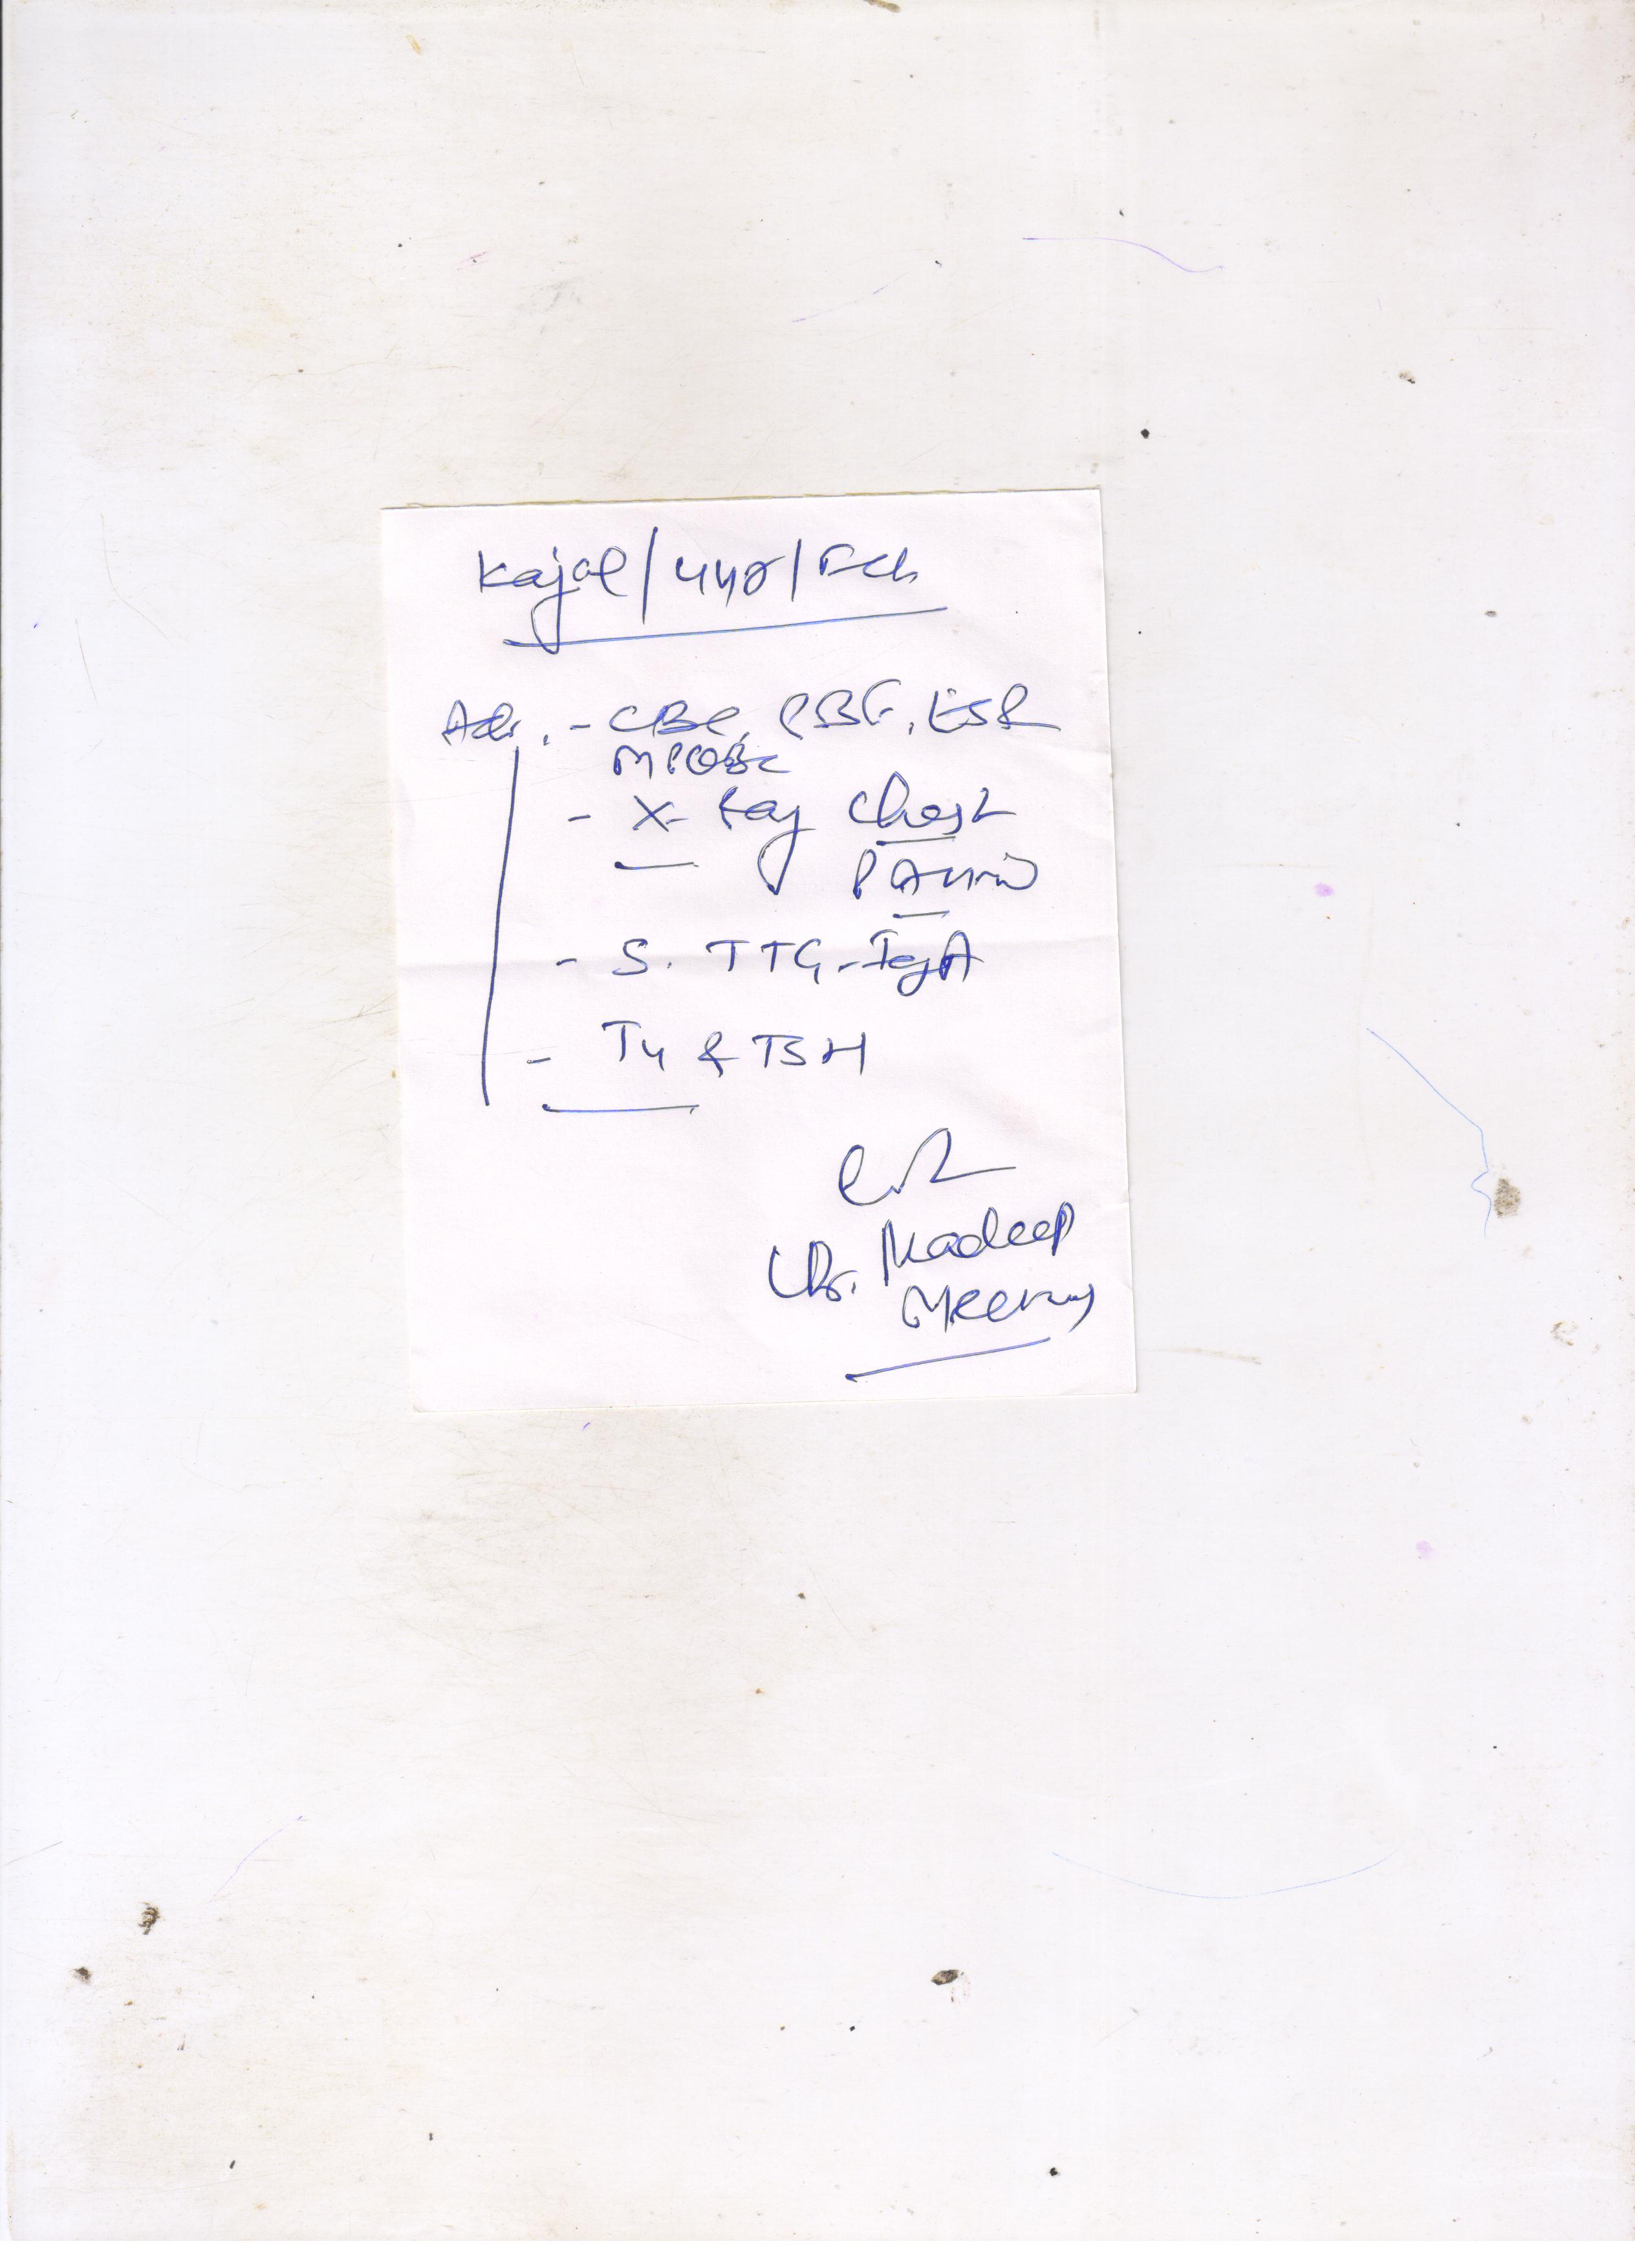 Kajal/4yr/Fch
Adv. - CBC, PBF, ESR
MPQBC
- X-Ray Chest
PA view
- S. TTG-IgA
- T4 & TSH
Dr.
Meena